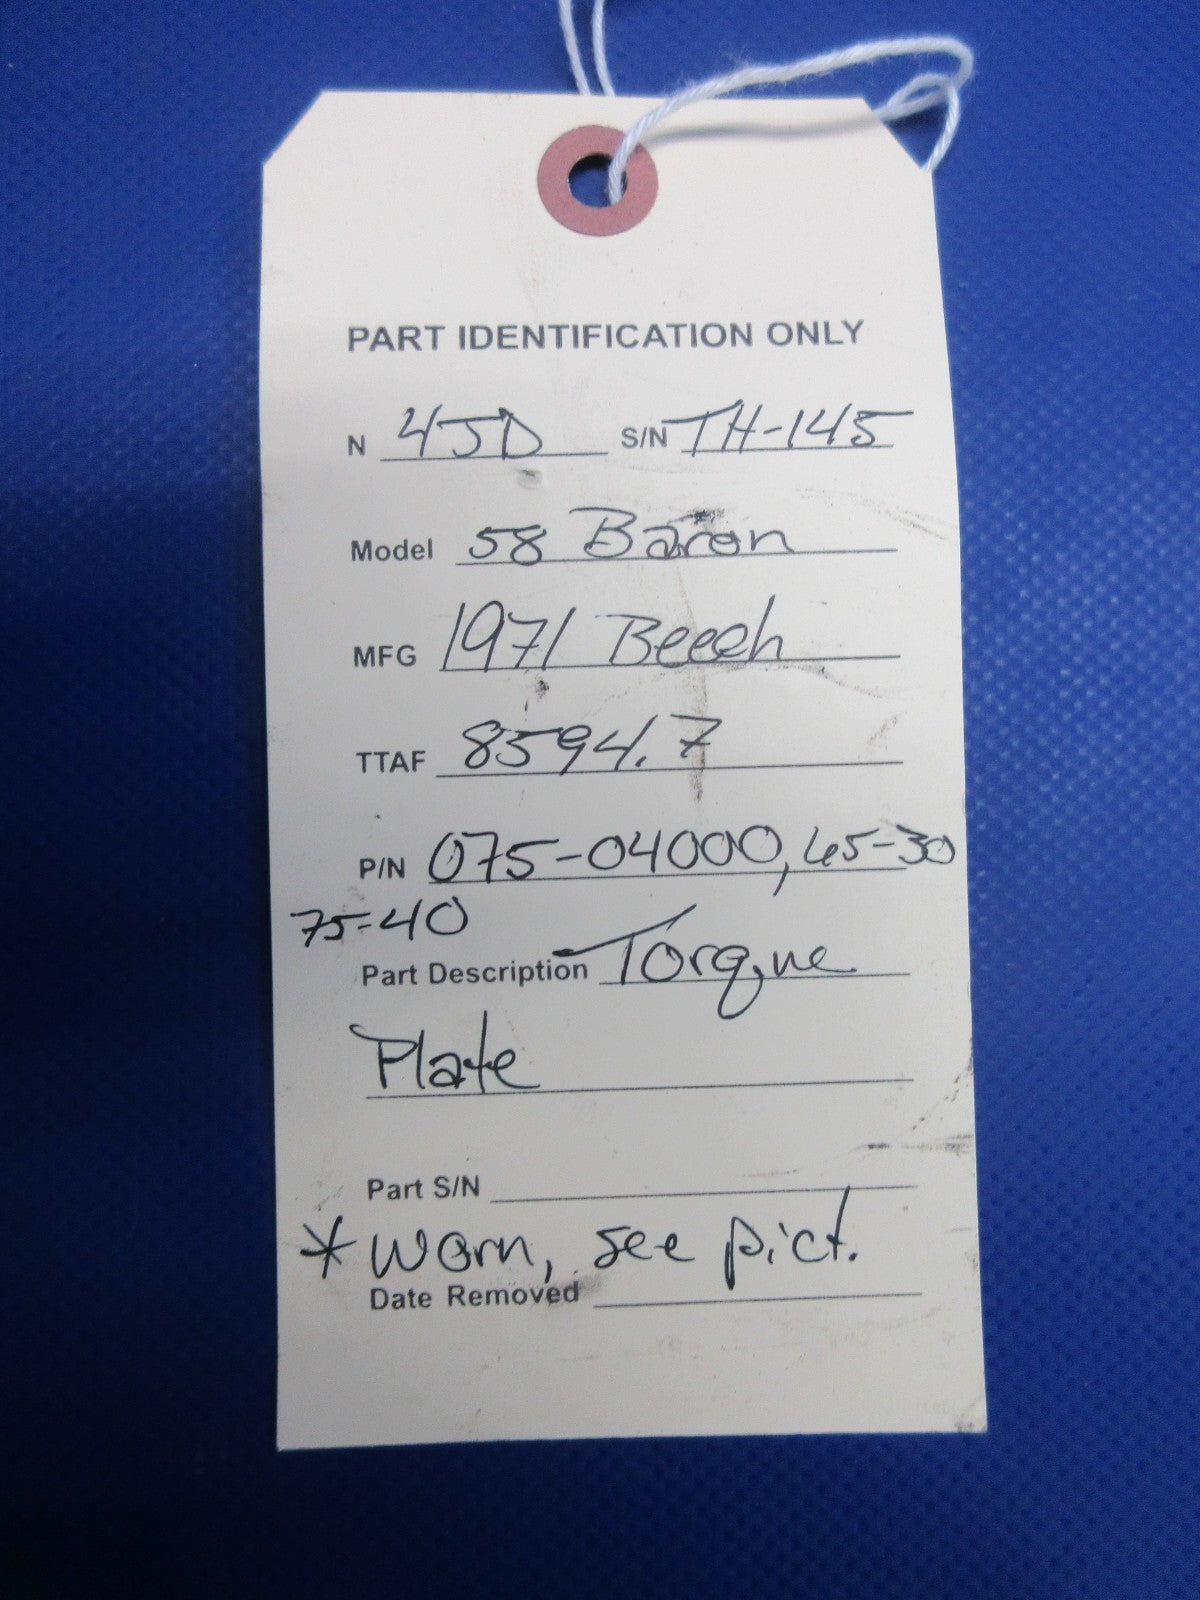 PART IDENTIFICATION ONLY
N 4JD S/N TH-145
Model 58 Baron
MFG 1971 Beech
TTAF 8594.7
P/N 075-04000, 65-30
75-40
Part Description Torque
Plate
Part S/N
* Worn, see pict.
Date Removed